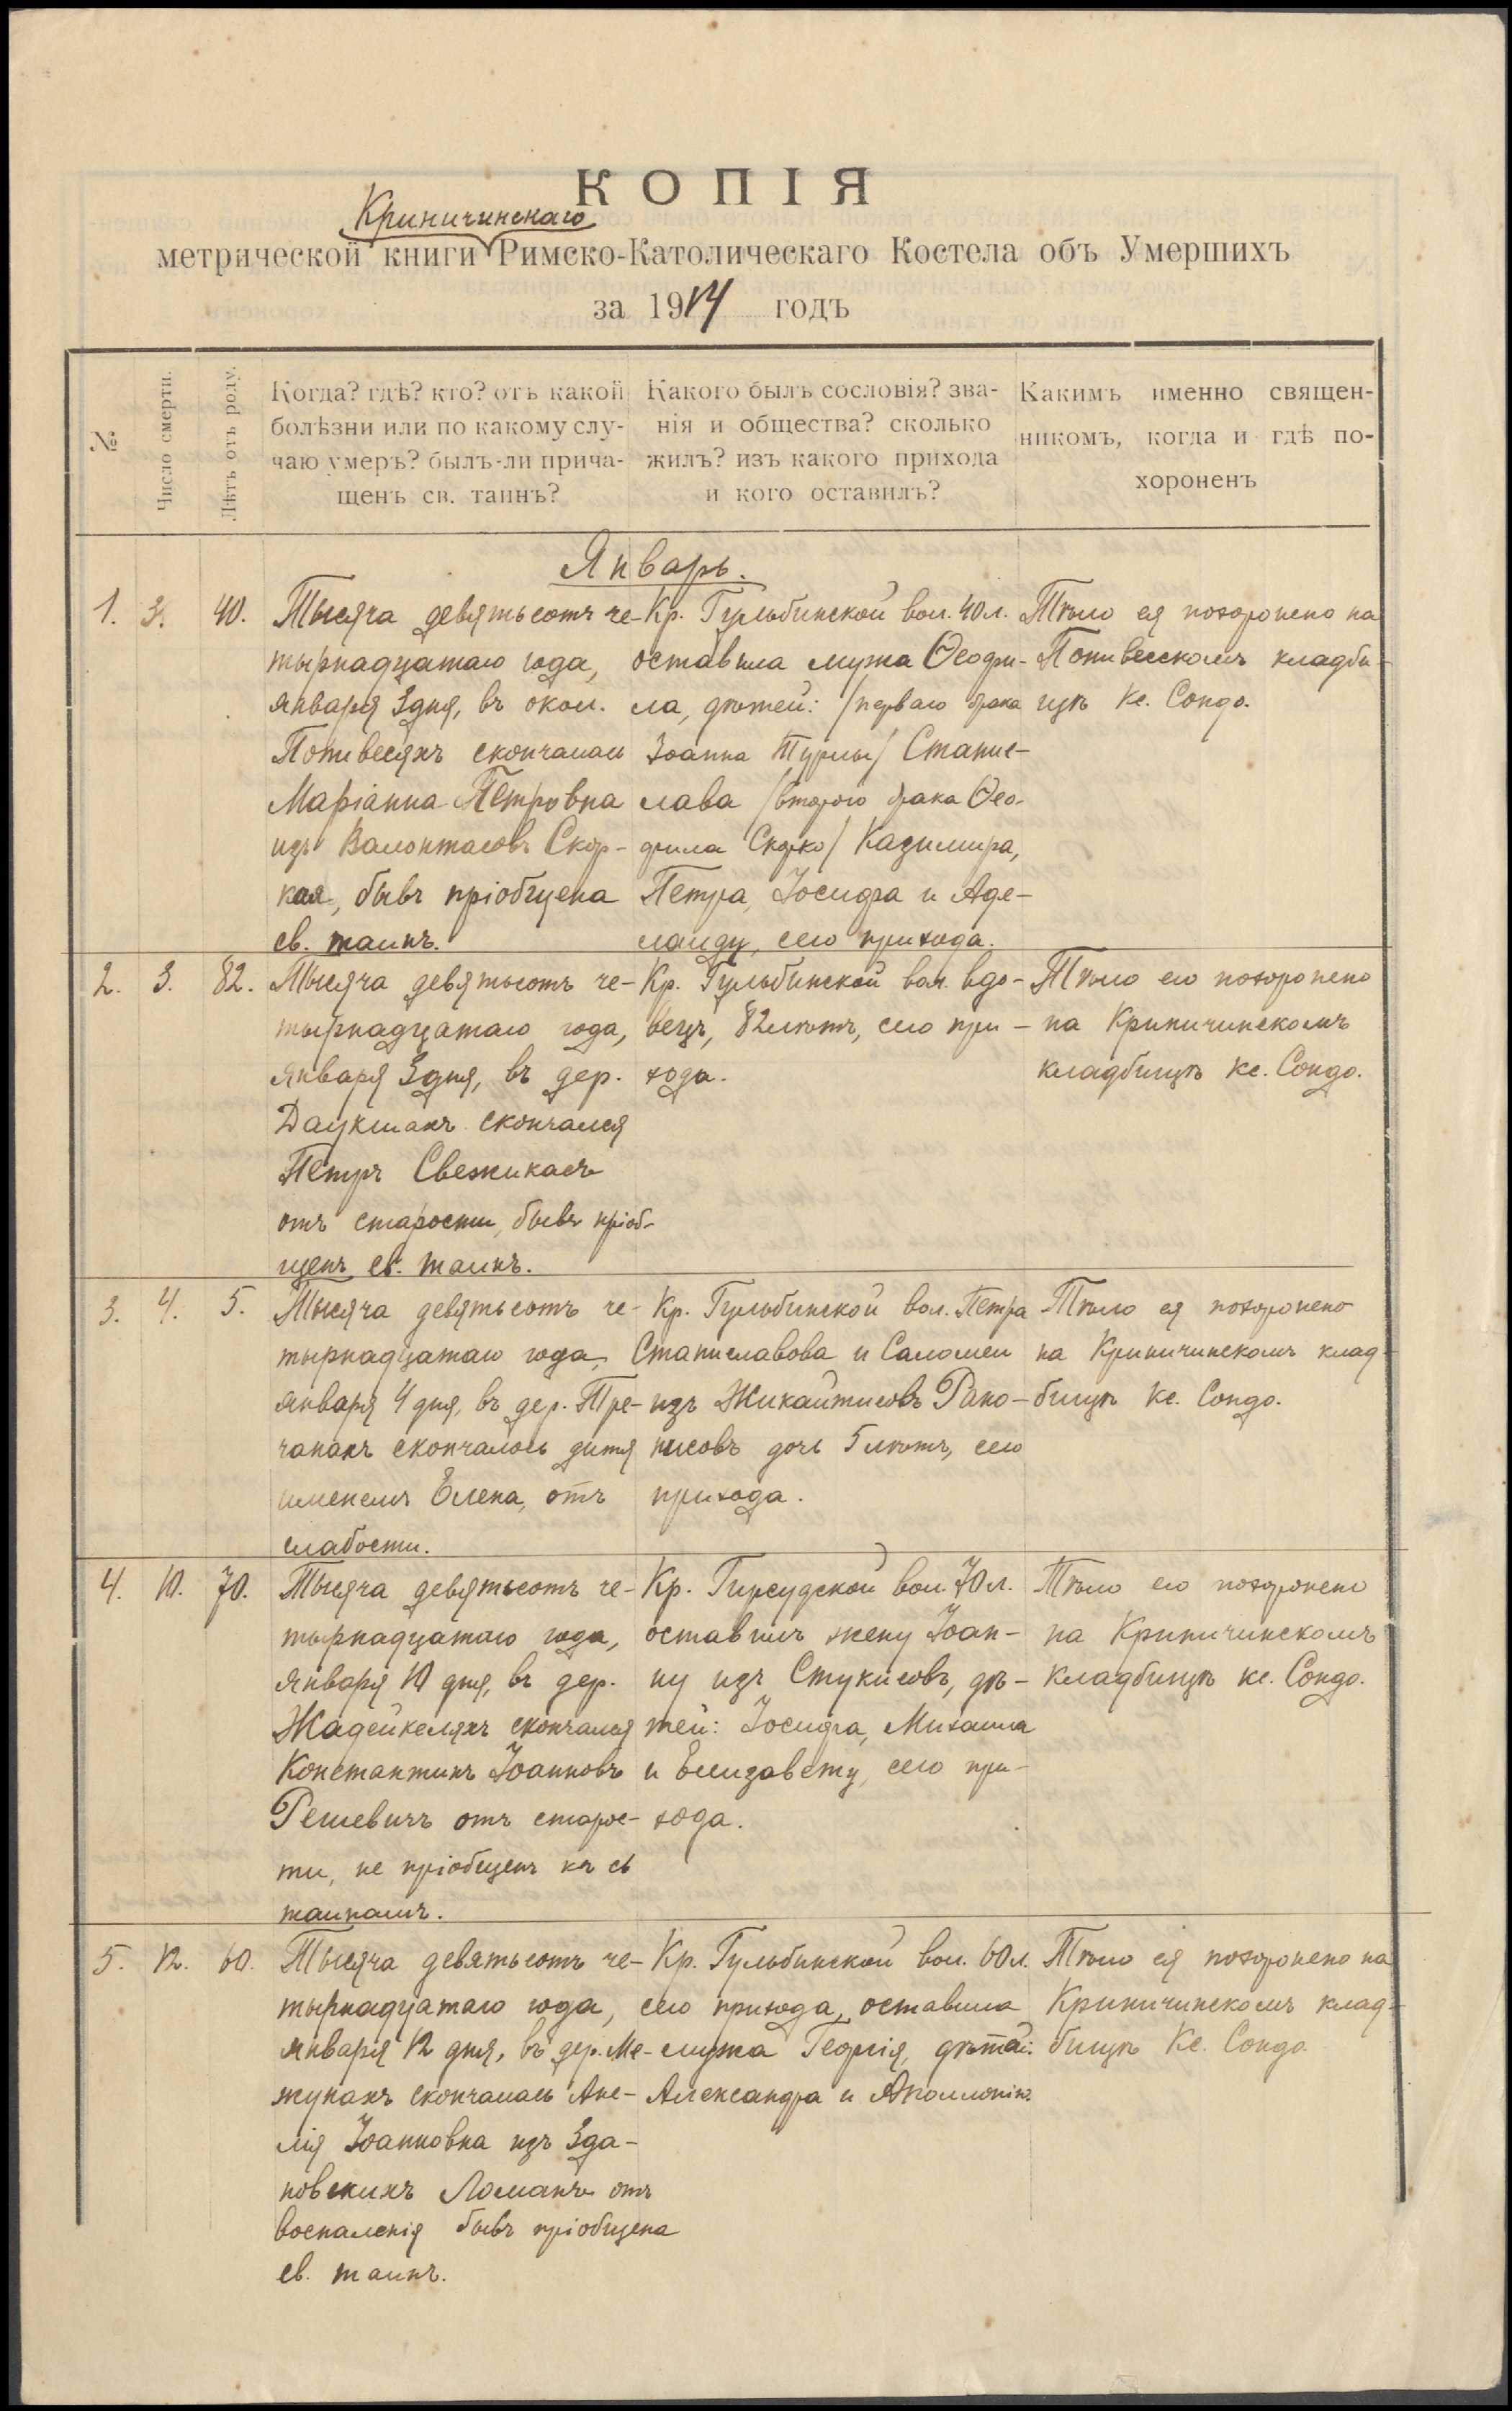 КОПІЯ
Криничинскаго
метрической книги Римско-Католическаго Костела объ Умершихъ
за 1914 годъ
№
Число смерти.
Лѣтъ отъ роду.
Когда? гдѣ? кто? отъ какой
болѣзни или по какому слу-
чаю умеръ? былъ-ли прича-
щенъ св. таинъ?
Какого былъ сословія? зва-
нія и общества? сколько
жилъ? изъ какого прихода
и кого оставилъ?
Какимъ именно священ-
никомъ, когда и гдѣ по-
хороненъ
Январь.
1. 3. 40.
Тысяча девятьсотъ че-
тырнадцатаго года,
января 3 дня, въ окол.
Потивесяхъ скончалась
Маріанна Петровна
изъ Валонтасовъ Скор-
кая, бывъ пріобщена
св. таинъ.
Кр. Гульбинской вол. 40 л.
оставила мужа Ѳеофи-
ла, дѣтей: /перваго брака
Іоанна Турлы/ Станис-
лава /второго брака Ѳео-
фила Скорко/ Казимира,
Петра, Іосифа и Аде-
лаиду, сего прихода.
Тѣло ея похоронено на
Потивесскомъ кладби-
щѣ Кс. Сондо.
2. 3. 82.
Тысяча девятьсотъ че-
тырнадцатаго года,
января 3 дня, въ дер.
Даукшахъ скончался
Петръ Свежикасъ
отъ старости, бывъ пріоб-
щенъ св. таинъ.
Кр. Гульбинской вол. вдо-
вецъ, 82 лѣтъ, сего при-
хода.
Тѣло его похоронено
на Криничинскомъ
кладбищѣ кс. Сондо.
3. 4. 5.
Тысяча девятьсотъ че-
тырнадцатаго года,
января 4 дня, въ дер. Тре-
чанахъ скончалось дитя
именемъ Елена, отъ
слабости.
Кр. Гульбинской вол. Петра
Станиславова и Саломеи
изъ Жикайтисовъ Рако-
нисовъ дочь 5 лѣтъ, сего
прихода.
Тѣло ея похоронено
на Криничинскомъ клад-
бищѣ Кс. Сондо.
4. 10. 70.
Тысяча девятьсотъ че-
тырнадцатаго года,
января 10 дня, въ дер.
Жадейкеляхъ скончался
Константинъ Іоанновъ
Решевичъ отъ старос-
ти, не пріобщенъ къ св
таинамъ.
Кр. Гирсудской вол. 70 л.
оставилъ жену Іоан-
ну изъ Стукисовъ, дѣ-
тей: Іосифа, Михаила
и Елизавету, сего при-
хода.
Тѣло его похоронено
на Криничинскомъ
кладбищѣ кс. Сондо.
5. 12. 60.
Тысяча девятьсотъ че-
тырнадцатаго года,
января 12 дня, въ дер. Ме-
жунахъ скончалась Ане-
лія Іоанновна изъ Зда-
новскихъ Ломанъ отъ
воспаленія бывъ пріобщена
св. таинъ.
Кр. Гульбинской вол. 60 л.
сего прихода, оставила
мужа Георгія, дѣтей:
Александра и Аполлонію.
Тѣло ея похоронено на
Криничинскомъ клад-
бищѣ Кс. Сондо.